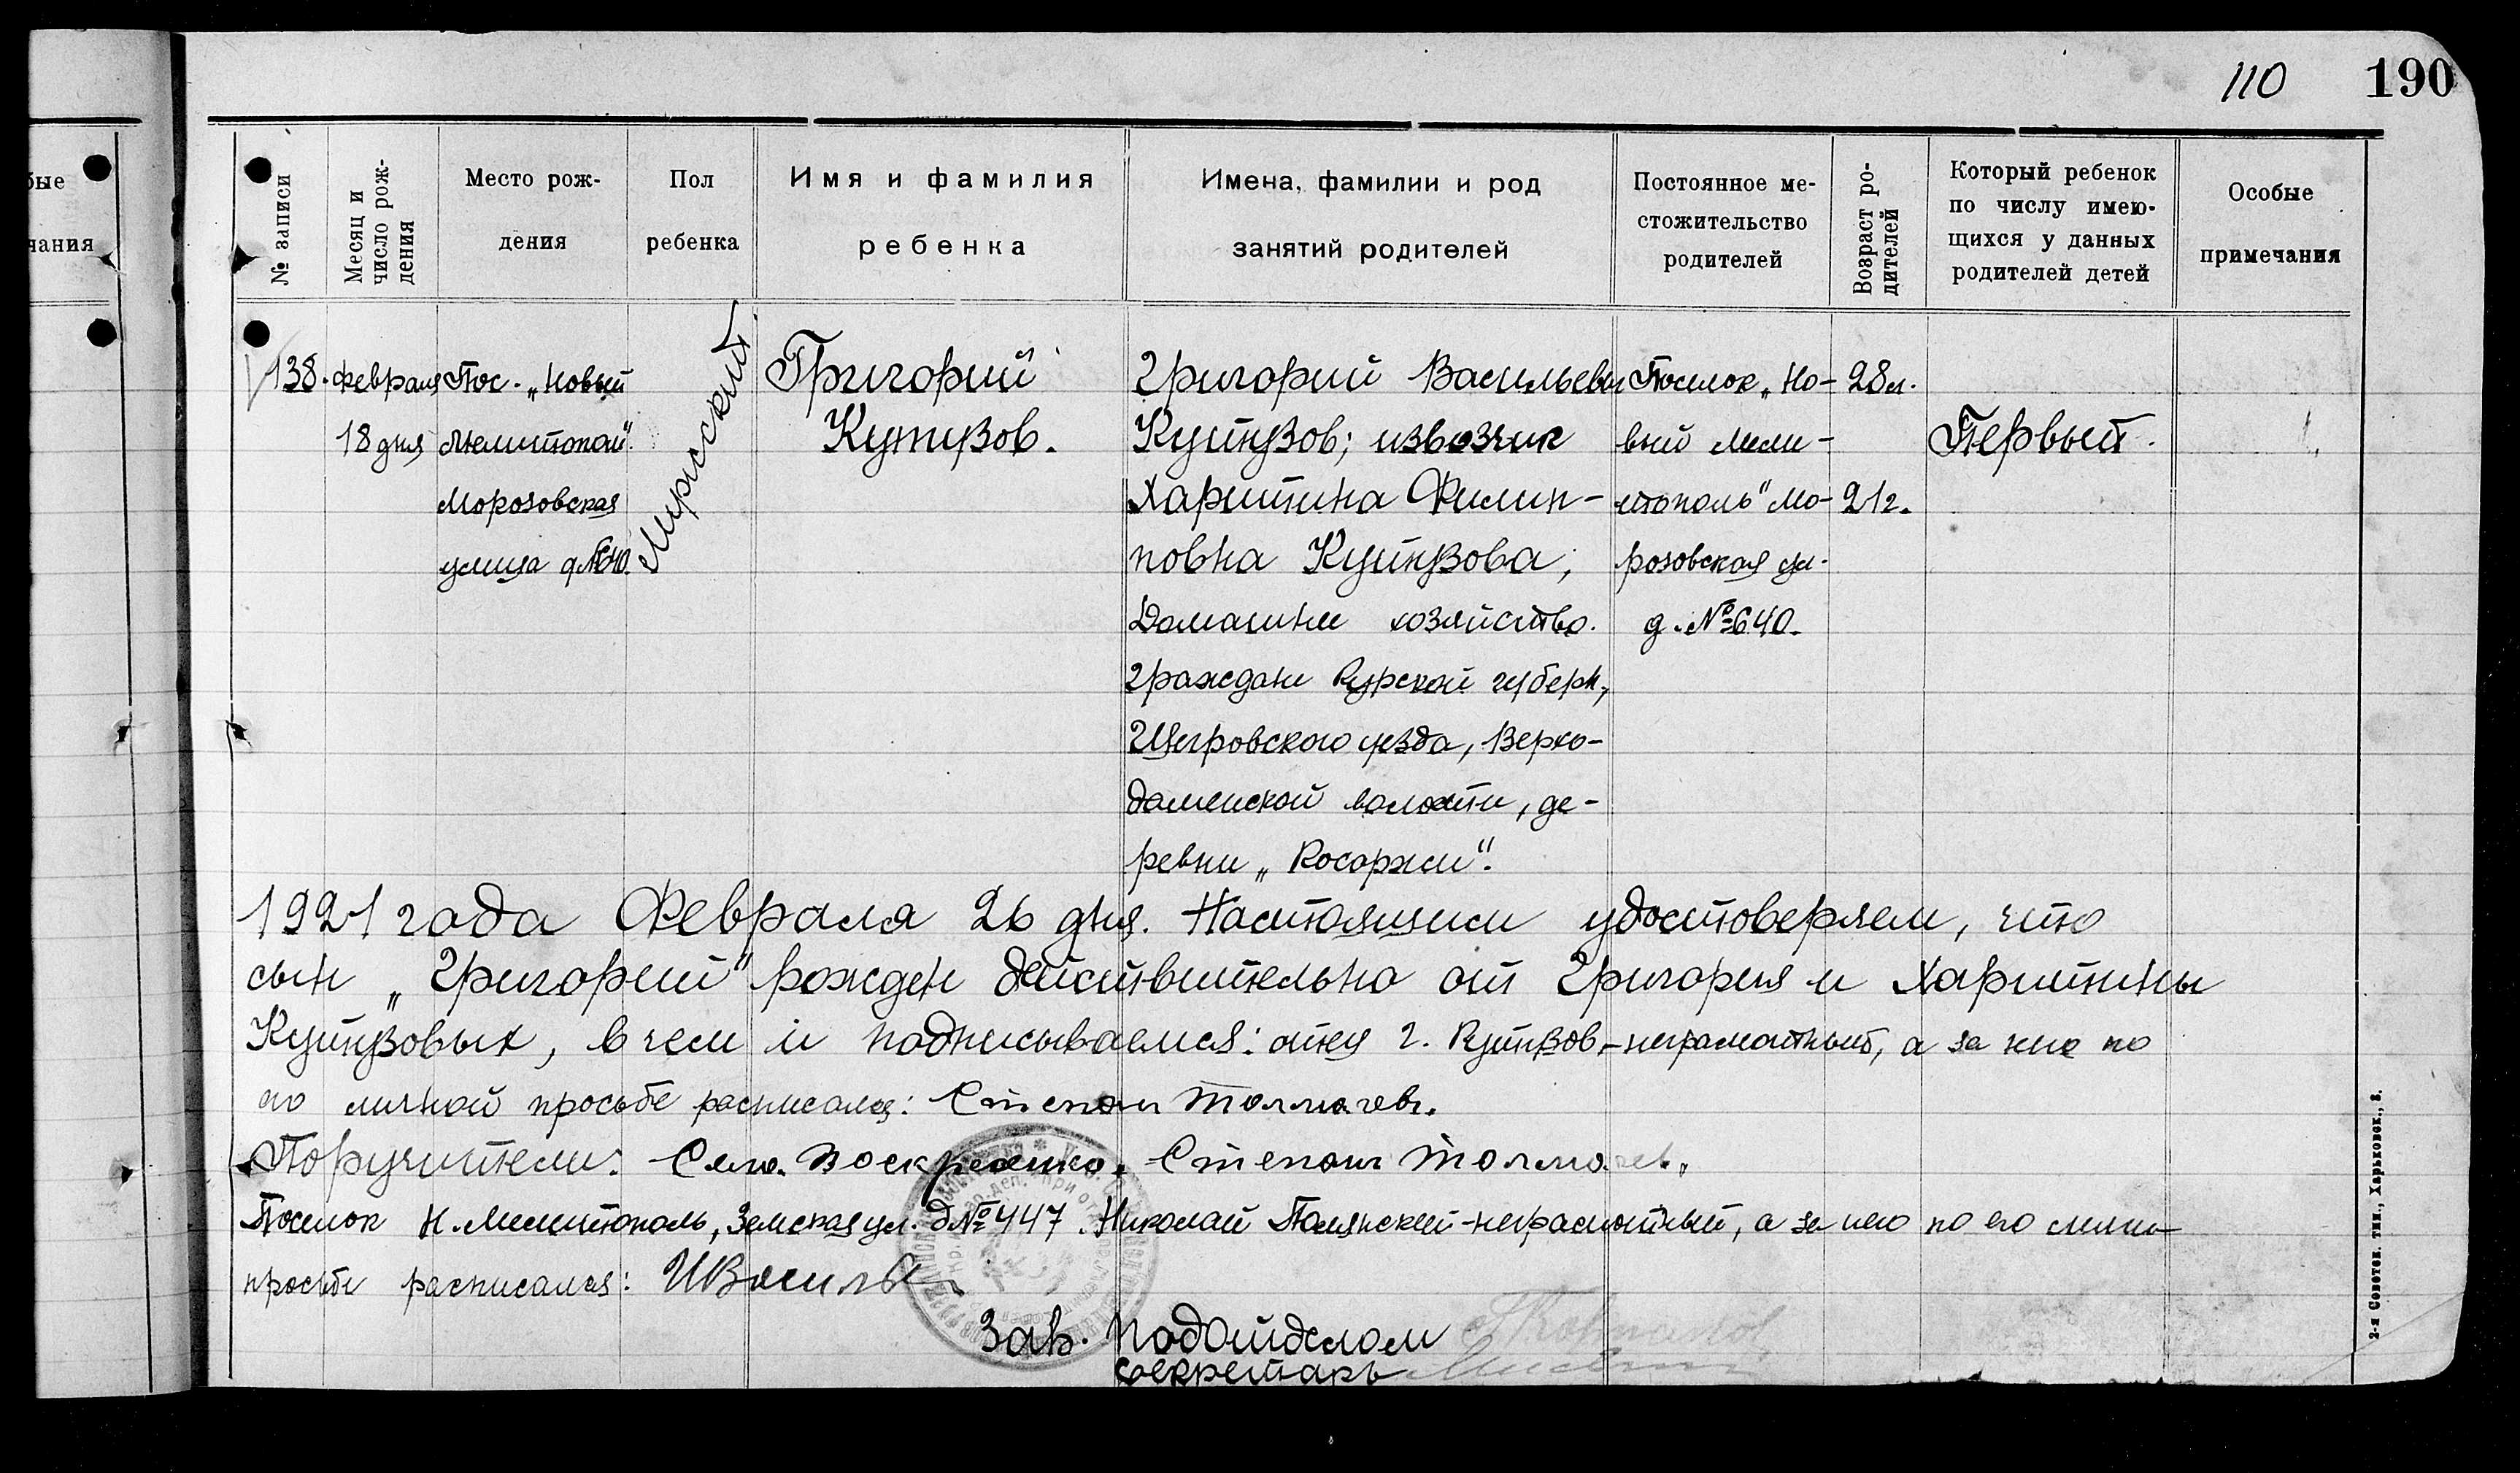 110 190
бые
чания
№ записи
Месяц и
число рож-
дения
Место рож-
дения
Пол
ребенка
Имя и фамилия
ребенка
Имена, фамилии и род
занятий родителей
Постоянное ме-
стожительство
родителей
Возраст ро-
дителей
Который ребенок
по числу имею-
щихся у данных
родителей детей
Особые
примечания
138.
Февраля
18 дня
Пос. „Новый
Мелитопол"
Морозовская
улица д №640.
Мужской
Григорий
Кутузов.
Григорий Васильевич
Кутузов; извозчик
Харитина Филип-
повна Кутузова;
Домашнее хозяйство.
Граждане Курской губерн,
Щигровского уезда, Верхо-
даменской волости, де-
ревни „Косоржи".
Поселок „Но-
вый Мели-
тополь" Мо-
розовская ул.
д. №640.
28 л.
21 г.
Первый.
1921 года Февраля 26 дня. Настоящим удостоверяем, что
сын „Григорий" рожден действительно от Григория и Харитины
Кутузовых, в чем и подписываемся: отец Г. Кутузов-неграмотный, а за него по
его личной просьбе расписался: Степан Толмачев.
Поручители: Степан Толмачев.
Поселок Н. Мелитополь, Земская ул. д №447. Николай Полянский-неграмотный, а за него по его личн
просьбе расписался:
Зав. Подотделом
Секретарь
2-я Советск. тип., Харьковск., 8.